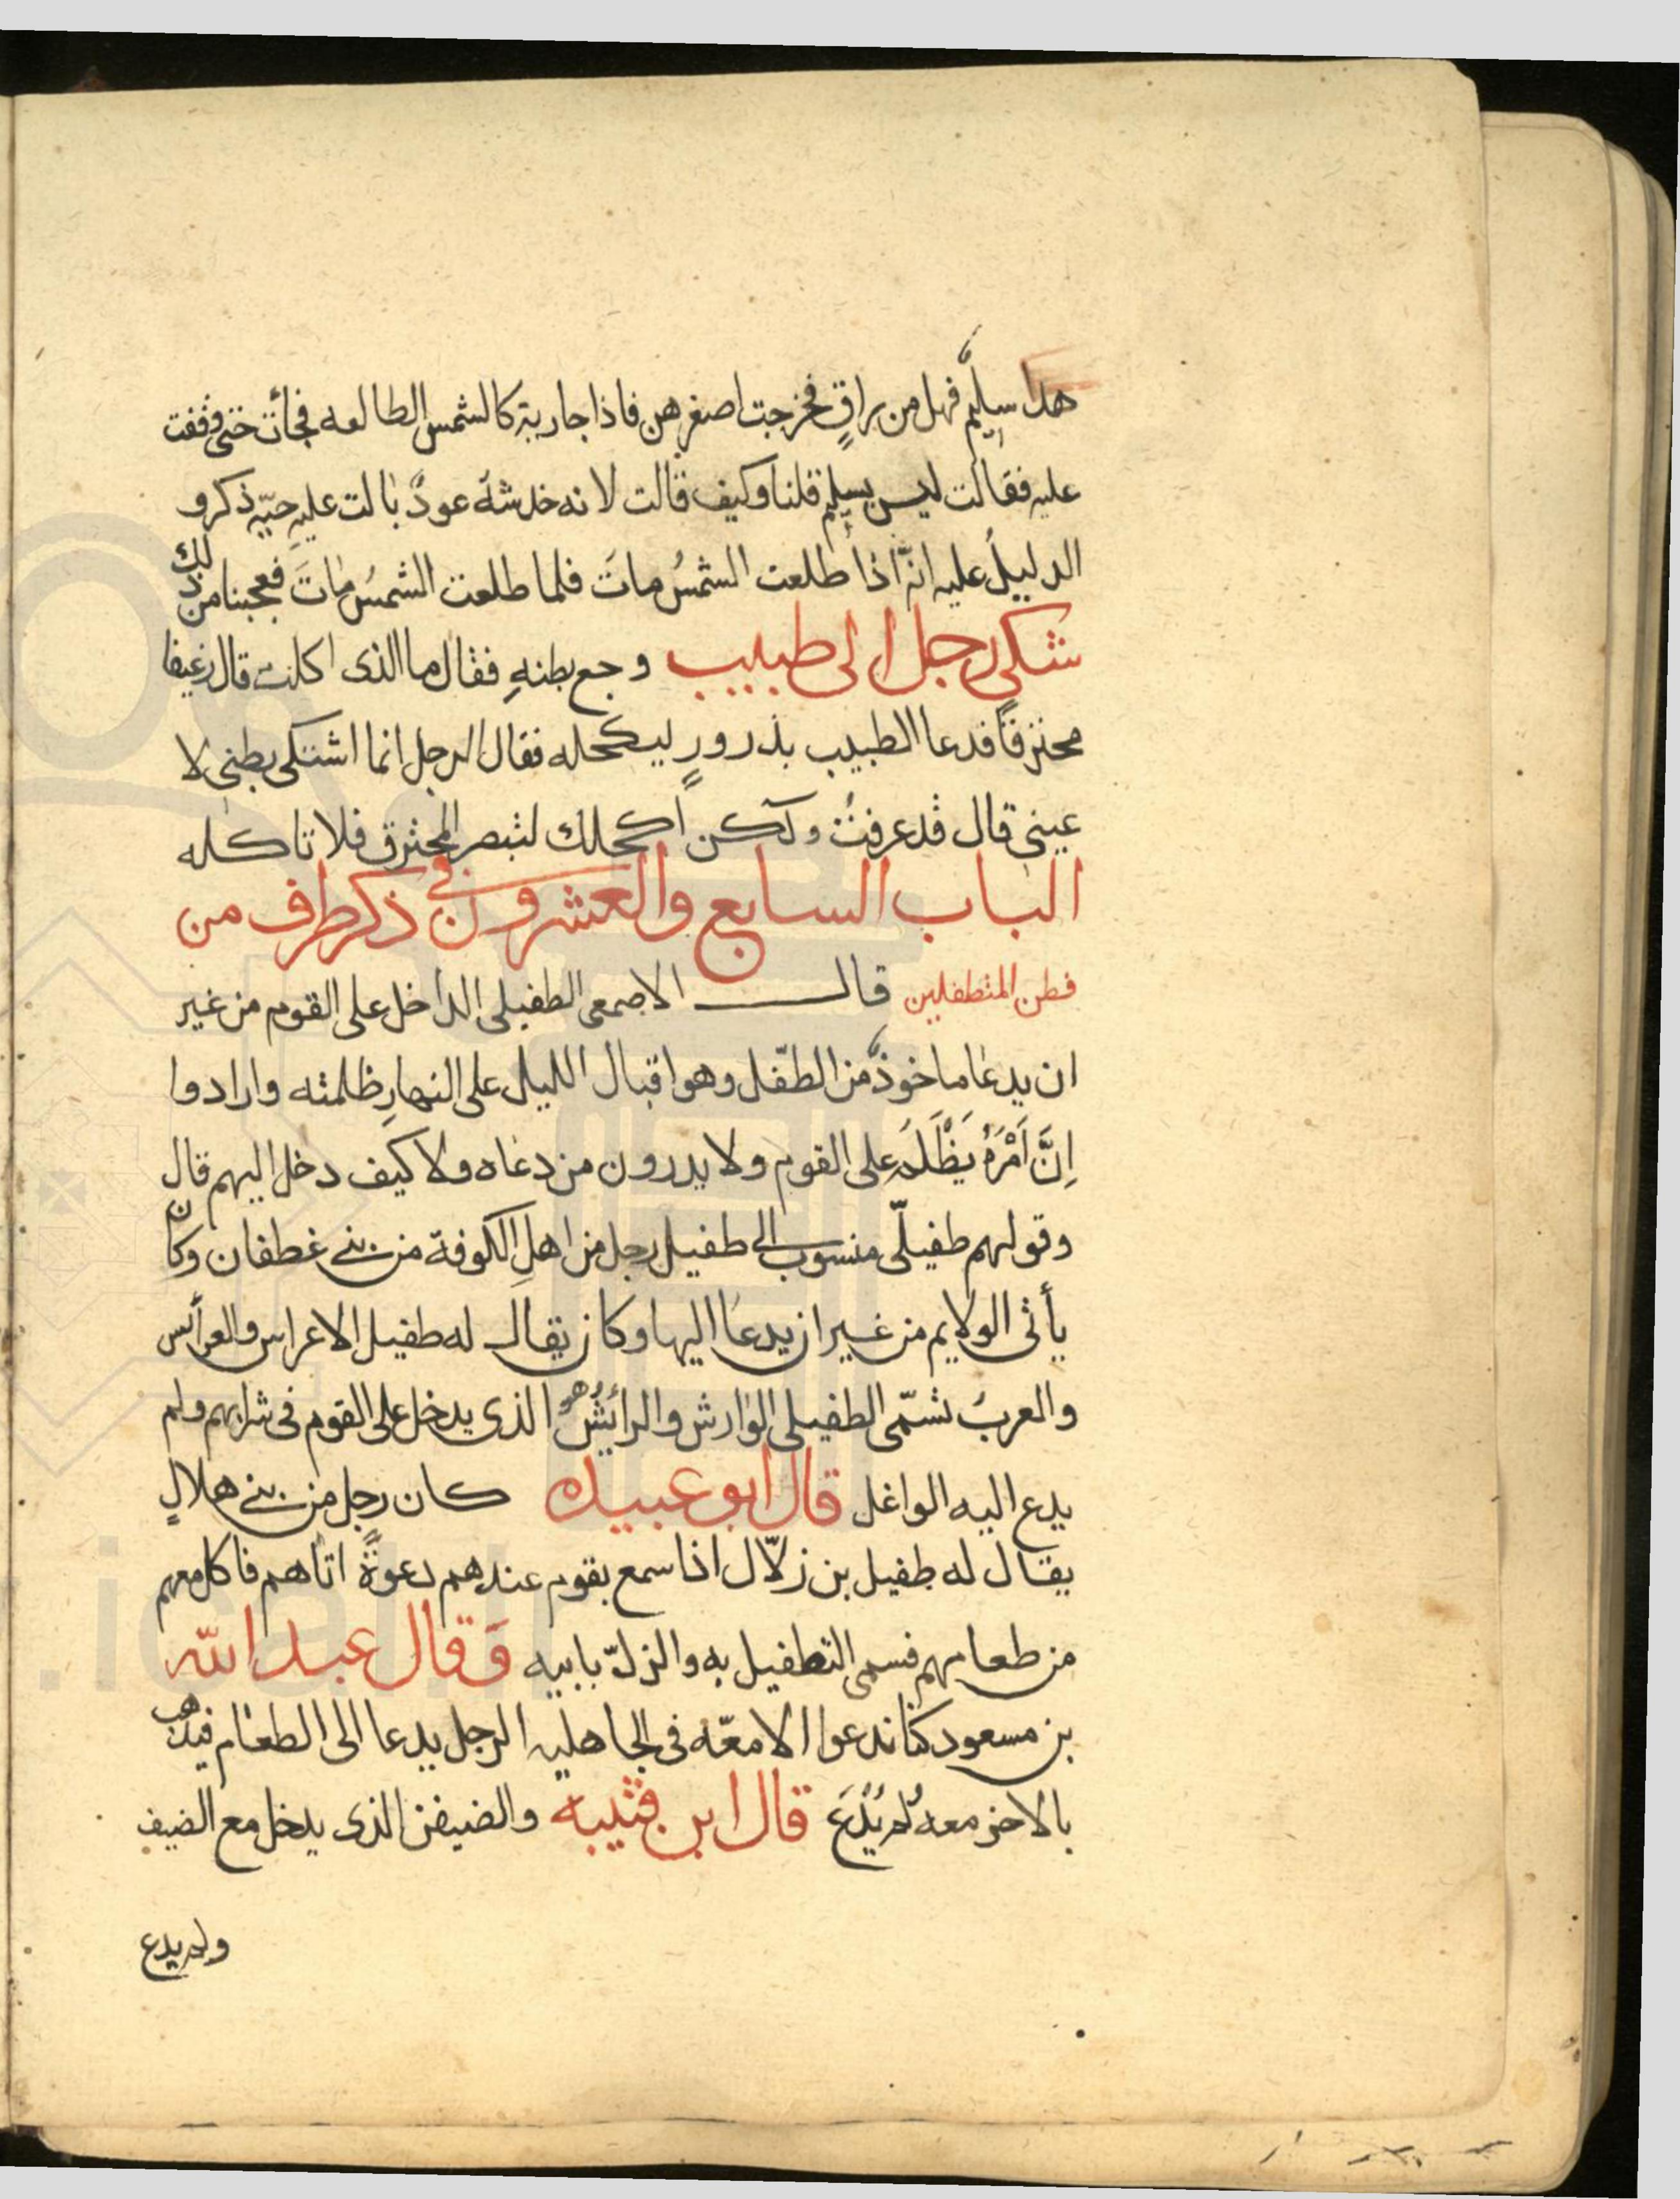 هذا سليم فهل من براقٍ فخرجت اصغرهن فاذا جارية كالشمس الطالعه فجأت حتى وقفت
عليه فقالت ليس بسليم قلنا وكيف قالت لانه خدشهُ عودٌ بالت عليه حيّه ذكر و
الدليلُ عليه انّه اذا طلعت الشمسُ ماتَ فلما طلعت الشمسُ ماتَ فعجبنا من ذلك
شكى رجل الى طبيب وجع بطنهِ فقال ما الذى اكلت قال رغيفا
محترقًا فدعا الطبيب بذرورٍ ليكحله فقال الرجل انما اشتكى بطنى لا
عينى قال قد عرفتُ ولكن اكحلك لتبصر المحترق فلا تاكله
الباب السابع والعشرون فى ذكر طرف من
فطن المتطفلين قال الاصمعى الطفيلى الداخل على القوم من غير
ان يدعا ماخوذٌ من الطفّل وهو اقبال الليل على النهارِ ظلمته وارادوا
اِنَّ اَمْرَهُ يَظْلَمَ على القوم ولا يدرون من دعاه ولا كيف دخل اليهم قال
وقولهم طفيلّى منسوب الى طفيل رجل من اهل الكوفة من بنى غطفان وكان
يأتى الولايم من غير ان يدعا اليها وكان يقال له طفيل الاعراس والعرأئس
والعربُ تسمّى الطفيلى الوارش والرائشُ هو الذى يدخل على القوم فى شرابهم ولم
يدع اليه الواغل قال ابو عبيده كان رجل من بنى هلالٍ
يقال له طفيل بن زلاّل اذا سمع بقوم عندهم دعوةً اتاهم فاكل معهم
من طعامهم فسمى التطفيل به والزلّ بابيه وَقال عبد الله
بن مسعود كنّا ندعوا الامعّه فى الجاهليه الرجل يدعا الى الطعام فيذهب
بالاخر معه لم يُدْعَ قال ابن قتيبه والضيفن الذى يدخل مع الضيف
ولم يدع